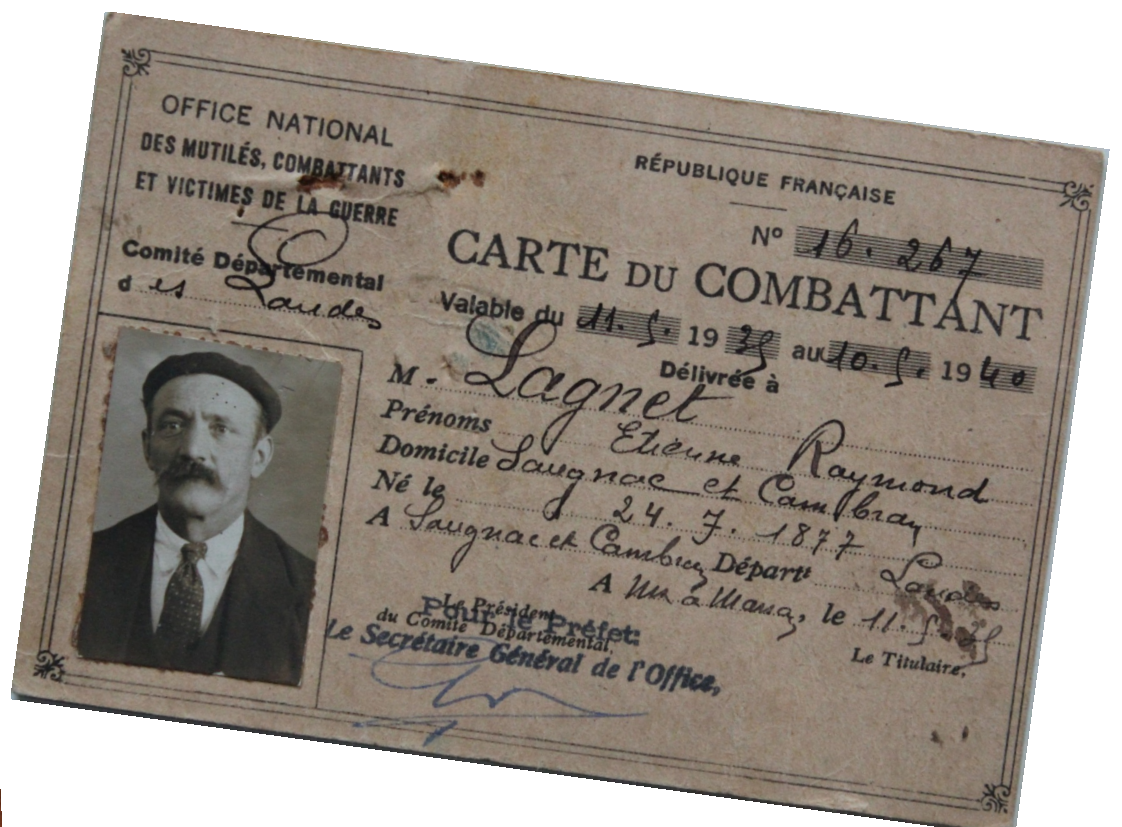 OFFICE NATIONAL
DES MUTILÉS, COMBATTANTS
ET VICTIMES DE LA GUERRE
Comité Départemental
des Landes
RÉPUBLIQUE FRANÇAISE
Nº 16.267
CARTE DU COMBATTANT
Valable du 11.5.1935 au 10.5.1940
Délivrée à
M. Lagnet
Prénoms Etienne Raymond
Domicile Saugnac et Cambran
Né le 24.7.1877
A Saugnac et Cambran Départt Landes
A Mt de Marsan, le 11.5.35
Le Président
du Comité Départemental,
Pour le Préfet:
Le Secrétaire Général de l'Office,
Le Titulaire,